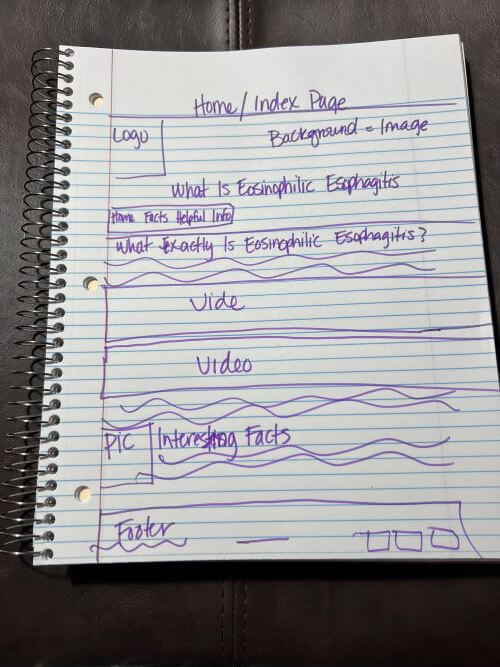 Home/Index Page
Logo
Background = Image
What Is Eosinophilic Esophagitis
Home Facts Helpful Info
What Exactly Is Eosinophilic Esophagitis?
Vide
Video
PIC
Interesting Facts
Footer